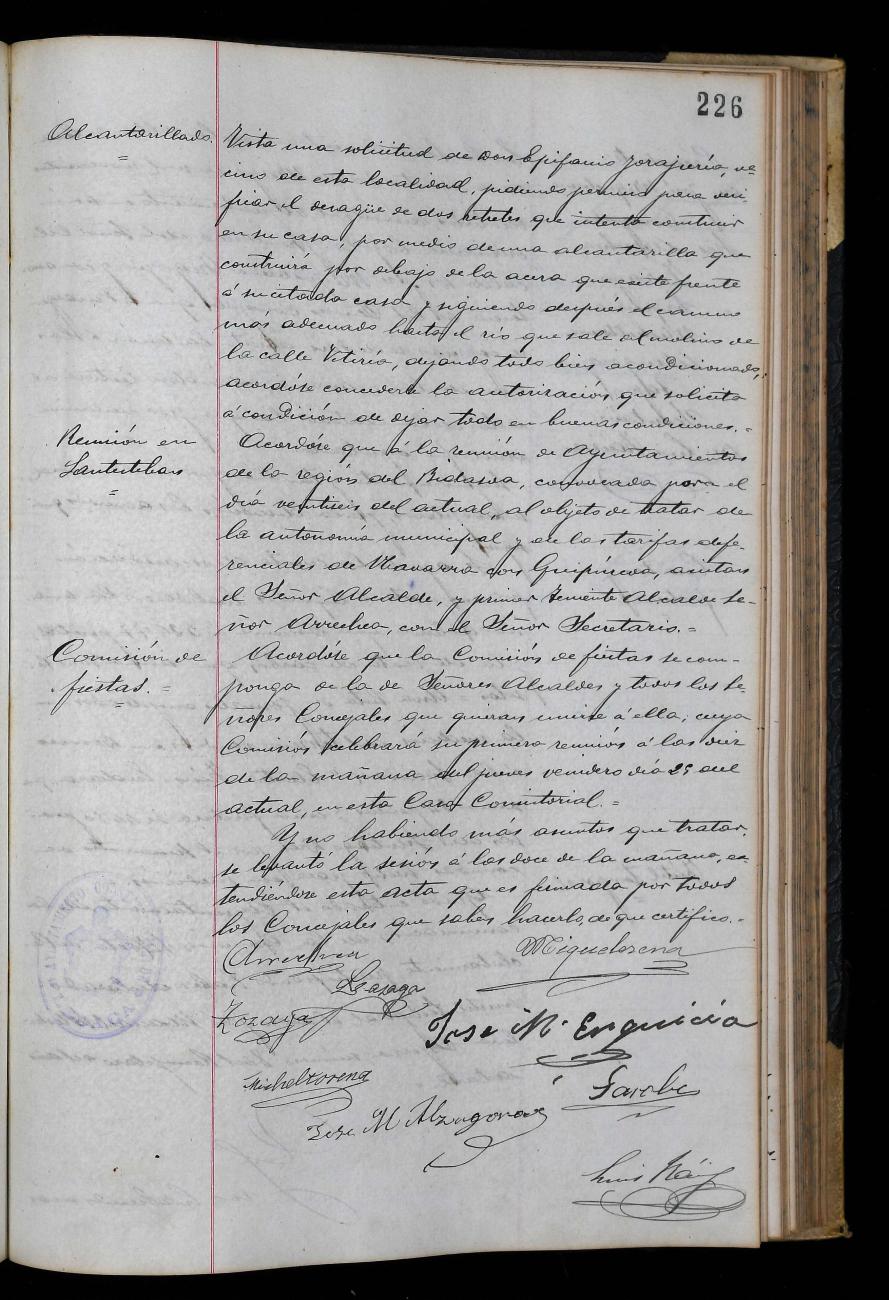 226
Alcantarillado.
=
Vista una solicitud de Don Epifanio Jorajuría, ve-
cino de esta localidad, pidiendo permiso para veri-
ficar el desagüe de dos retretes que intenta construir
en su casa, por medio de una alcantarilla que
construirá por debajo de la acera que existe frente
á su citada casa y siguiendo después el camino
más adecuado hasta el río que sale al molino de
la calle Vitiría, dejando todo bien acondicionado,
acordóse concederle la autorización que solicita
á condición de dejar todo en buenas condiciones. =
Reunión en
Santesteban
=
Acordóse que á la reunión de Ayuntamientos
de la región del Bidasoa, convocada para el
día veintiseis del actual, al objeto de tratar de
la autonomía municipal y de las tarifas dife-
renciales de Navarra con Guipúzcoa, asistan
el Señor Alcalde, y primer teniente Alcalde Se-
ñor Arrechea, con el Señor Secretario. =
Comisión de
fiestas. =
=
Acordóse que la Comisión de fiestas se com-
ponga de la de Señores Alcaldes y todos los Se-
ñores Concejales que quieran unirse á ella; cuya
Comisión celebrará su primera reunión á las diez
de la mañana del jueves venidero día 25 del
actual, en esta Casa Consistorial. =
Y no habiendo más asuntos que tratar,
se levantó la sesión á las doce de la mañana, ex-
tendiéndose esta acta que es firmada por todos
los Concejales que saben hacerlo, de que certifico. =
Arrechea
Miquelorena
Leazaga
Zozaya
José M.ª Enquicia
Michelltorena
Garobe
José M Alzugaray
Luis